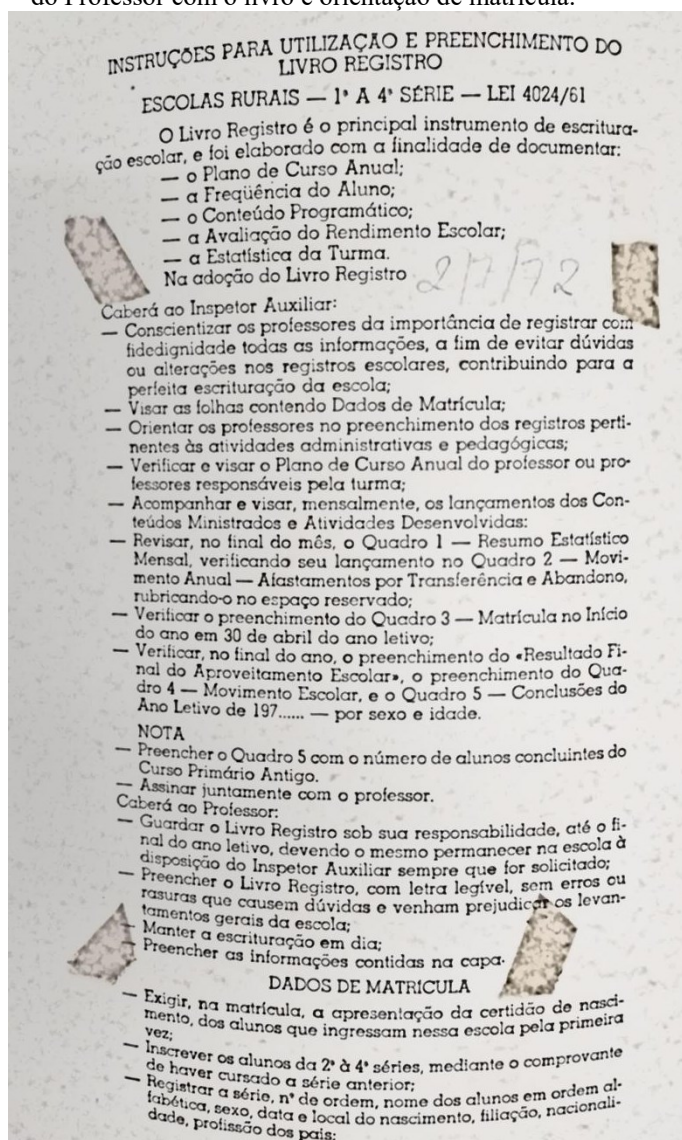 do Professor com o livro e orientação de matrícula.
INSTRUÇÕES PARA UTILIZAÇÃO E PREENCHIMENTO DO
LIVRO REGISTRO
ESCOLAS RURAIS — 1ª A 4ª SÉRIE — LEI 4024/61
O Livro Registro é o principal instrumento de escritura-
ção escolar, e foi elaborado com a finalidade de documentar:
— o Plano de Curso Anual;
— a Freqüência do Aluno;
— o Conteúdo Programático;
— a Avaliação do Rendimento Escolar;
— a Estatística da Turma.
Na adoção do Livro Registro 2/7/72
Caberá ao Inspetor Auxiliar:
— Conscientizar os professores da importância de registrar com
fidedignidade todas as informações, a fim de evitar dúvidas
ou alterações nos registros escolares, contribuindo para a
perfeita escrituração da escola;
— Visar as folhas contendo Dados de Matrícula;
— Orientar os professores no preenchimento dos registros perti-
nentes às atividades administrativas e pedagógicas;
— Verificar e visar o Plano de Curso Anual do professor ou pro-
fessores responsáveis pela turma;
— Acompanhar e visar, mensalmente, os lançamentos dos Con-
teúdos Ministrados e Atividades Desenvolvidas:
— Revisar, no final do mês, o Quadro 1 — Resumo Estatístico
Mensal, verificando seu lançamento no Quadro 2 — Movi-
mento Anual — Afastamentos por Transferência e Abandono,
rubricando-o no espaço reservado;
— Verificar o preenchimento do Quadro 3 — Matrícula no Início
do ano em 30 de abril do ano letivo;
— Verificar, no final do ano, o preenchimento do «Resultado Fi-
nal do Aproveitamento Escolar», o preenchimento do Qua-
dro 4 — Movimento Escolar, e o Quadro 5 — Conclusões do
Ano Letivo de 197...... — por sexo e idade.
NOTA
— Preencher o Quadro 5 com o número de alunos concluintes do
Curso Primário Antigo.
— Assinar juntamente com o professor.
Caberá ao Professor:
— Guardar o Livro Registro sob sua responsabilidade, até o fi-
nal do ano letivo, devendo o mesmo permanecer na escola à
disposição do Inspetor Auxiliar sempre que for solicitado;
— Preencher o Livro Registro, com letra legível, sem erros ou
rasuras que causem dúvidas e venham prejudicar os levan-
tamentos gerais da escola;
— Manter a escrituração em dia;
— Preencher as informações contidas na capa.
DADOS DE MATRICULA
— Exigir, na matrícula, a apresentação da certidão de nasci-
mento, dos alunos que ingressam nessa escola pela primeira
vez;
— Inscrever os alunos da 2ª à 4ª séries, mediante o comprovante
de haver cursado a série anterior;
— Registrar a série, nº de ordem, nome dos alunos em ordem al-
fabética, sexo, data e local do nascimento, filiação, nacionali-
dade, profissão dos pais;